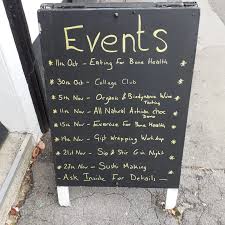 Events
11th Oct - Eating For Bone Health
30th Oct - Collage Club
5th Nov - Organic & Biodynamic Wine
Tasting
11th Nov - All Natural Artisan choc
Demo
15th Nov - Exercise For Bone Health
19th Nov - Gift Wrapping Workshop
21st Nov - Sip & Stir Gin Night
27th Nov - Sushi Making
- Ask Inside For Details -